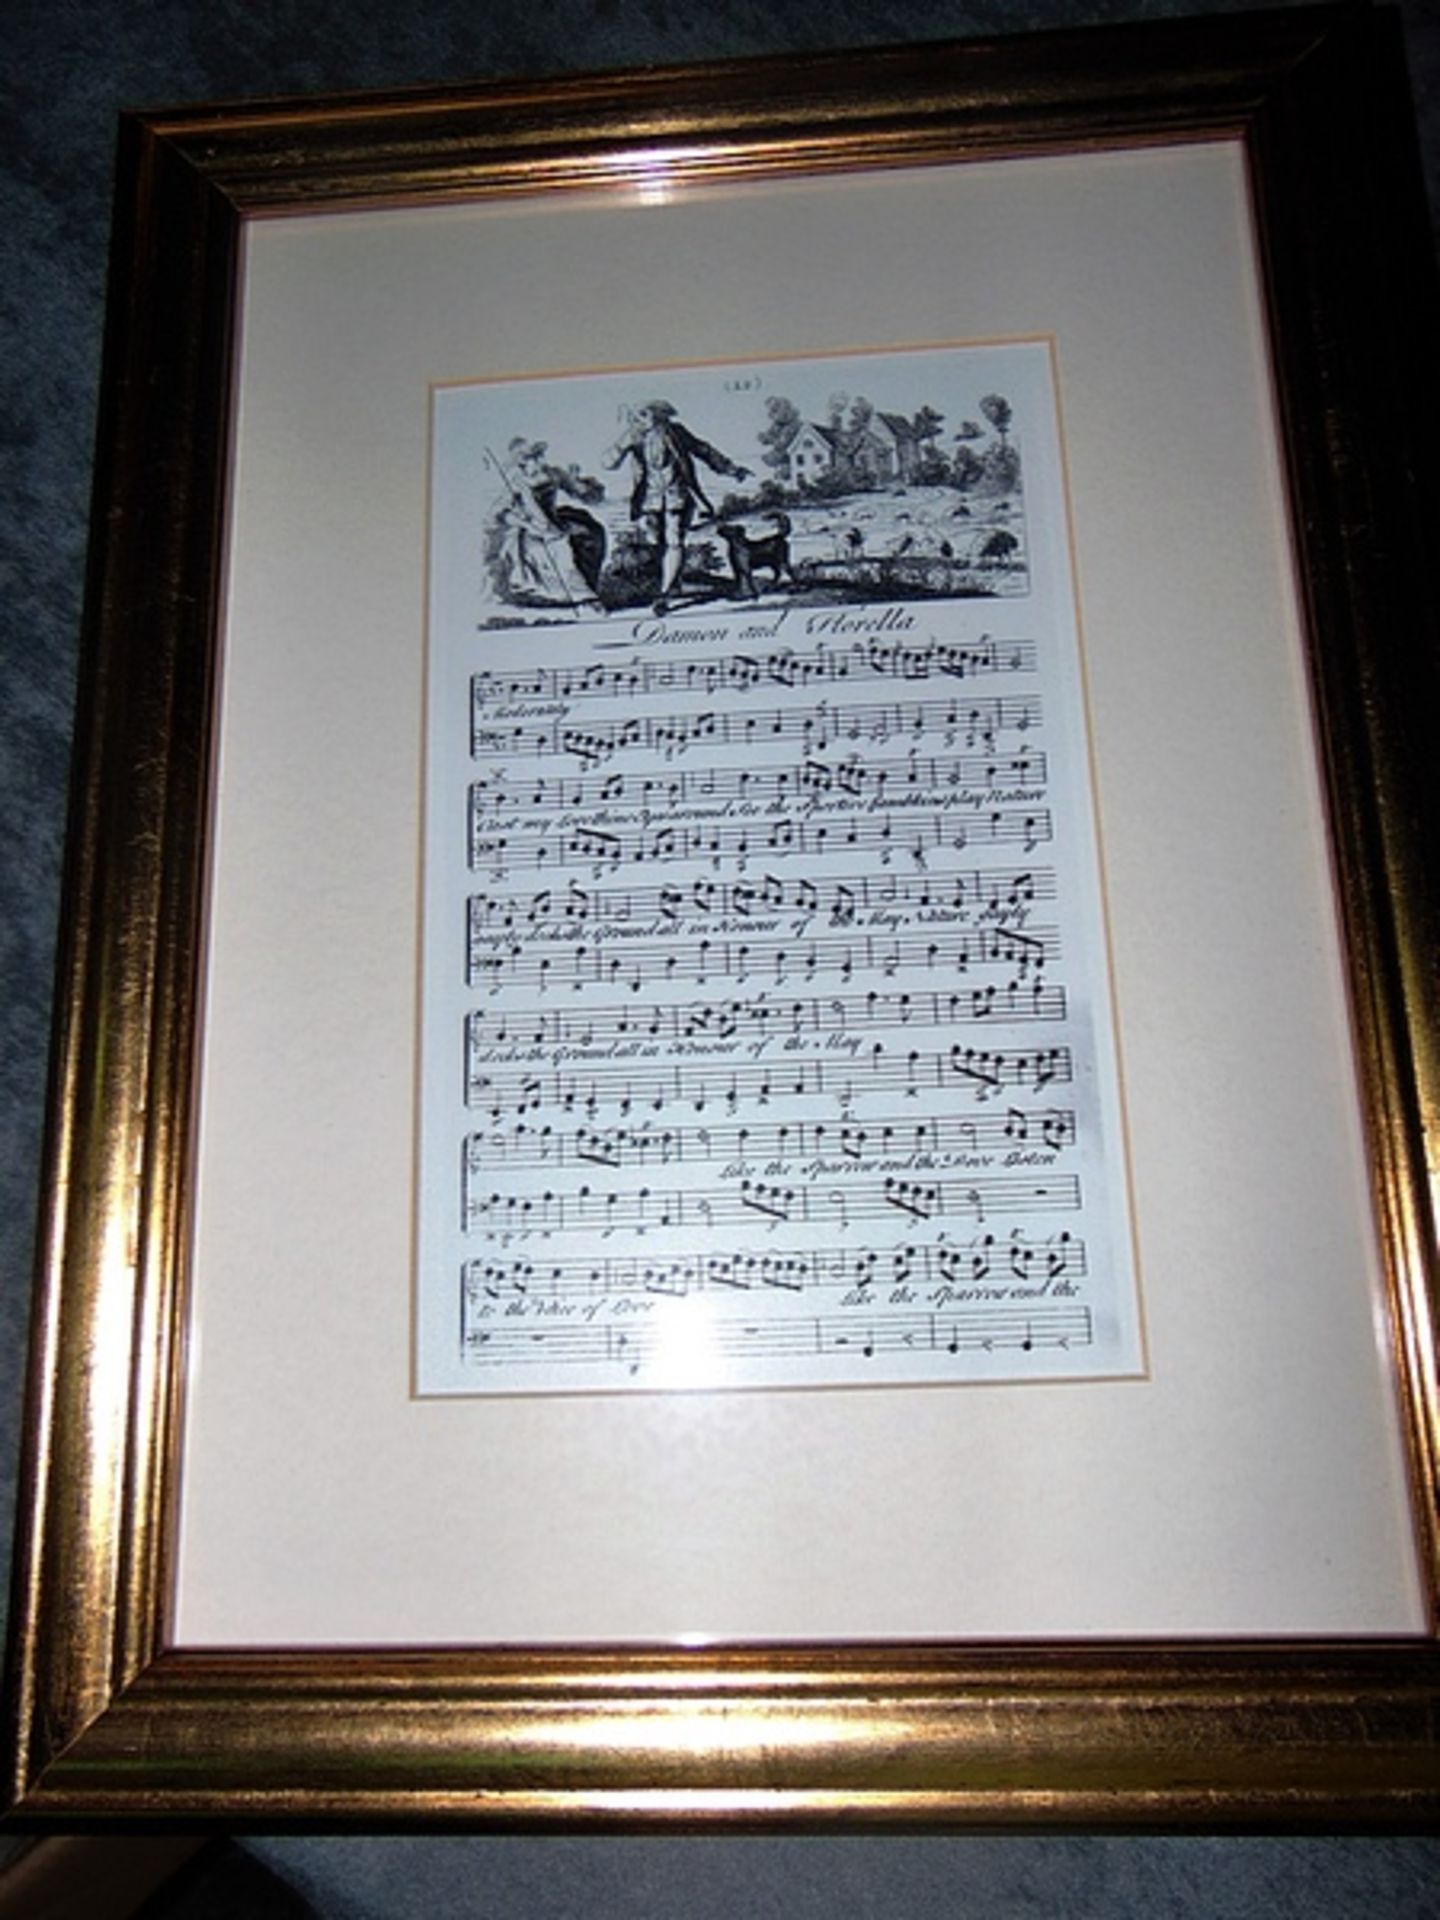 Damon and Florella
Moderately
Cast my Love thine Eyes around See the Sportive Lambkins play Nature
gayly decks the Ground all in Honour of the May Nature gayly
decks the Ground all in Honour of the May
Like the Sparrow and the Dove Listen
to the Voice of Love Like the Sparrow and the